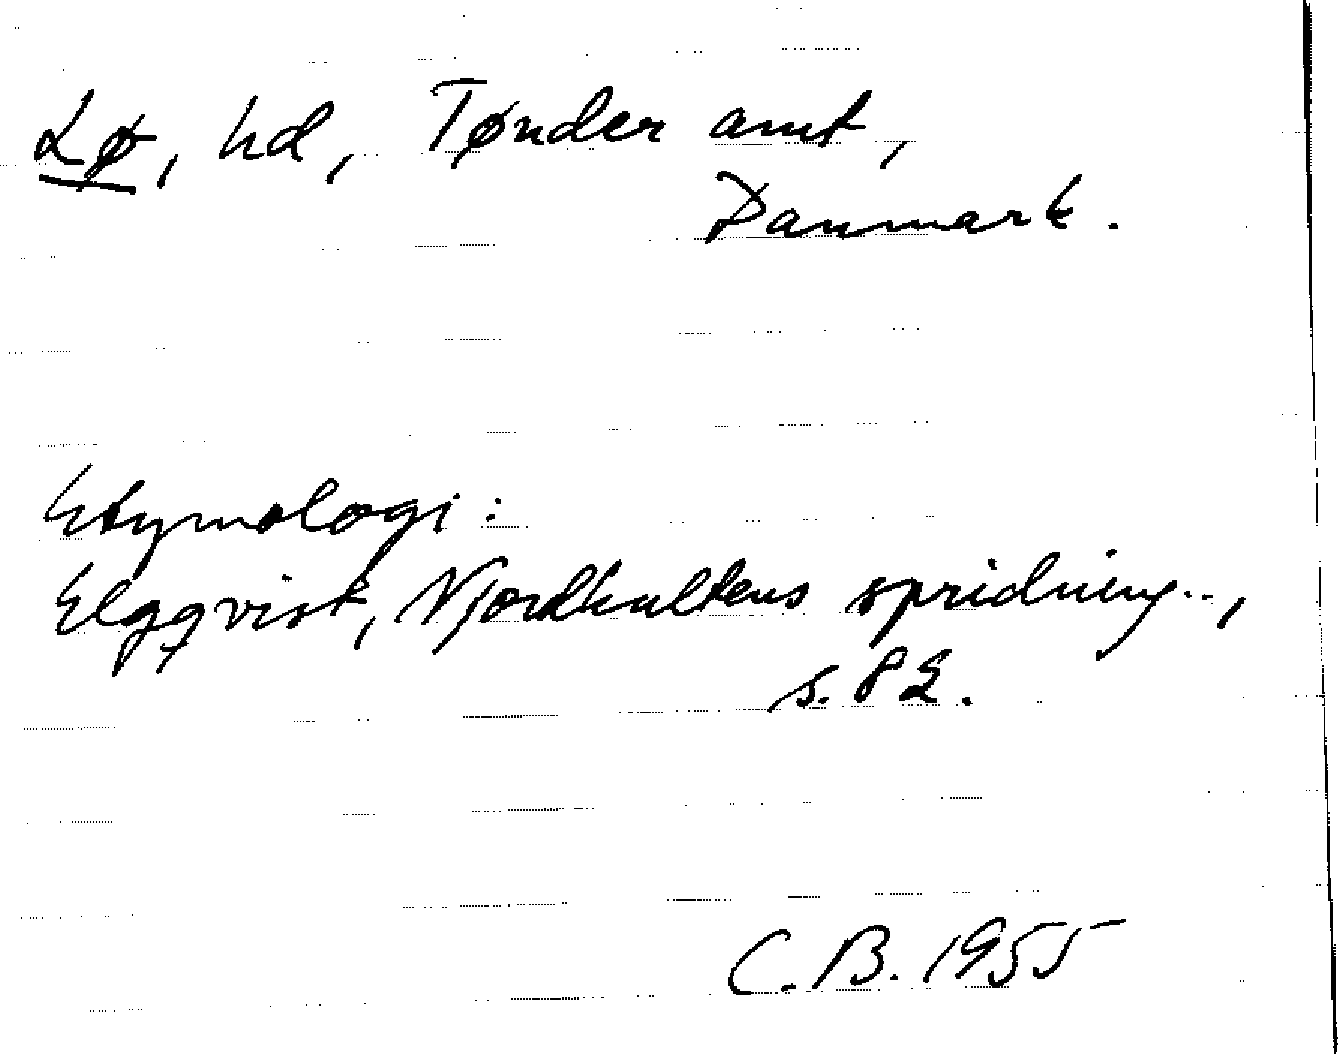 Lø, hd, Tønder amt,
Danmark.
Etymologi:
Elgqvist, Njordkultens spridning..,
s. 82.
C.B. 1955